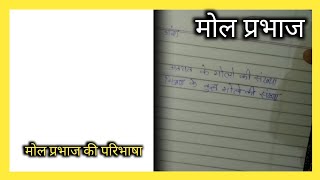 मोल प्रभाज
के मोलो की संख्या
के कुल मोलो की संख्या
मोल प्रभाज की परिभाषा